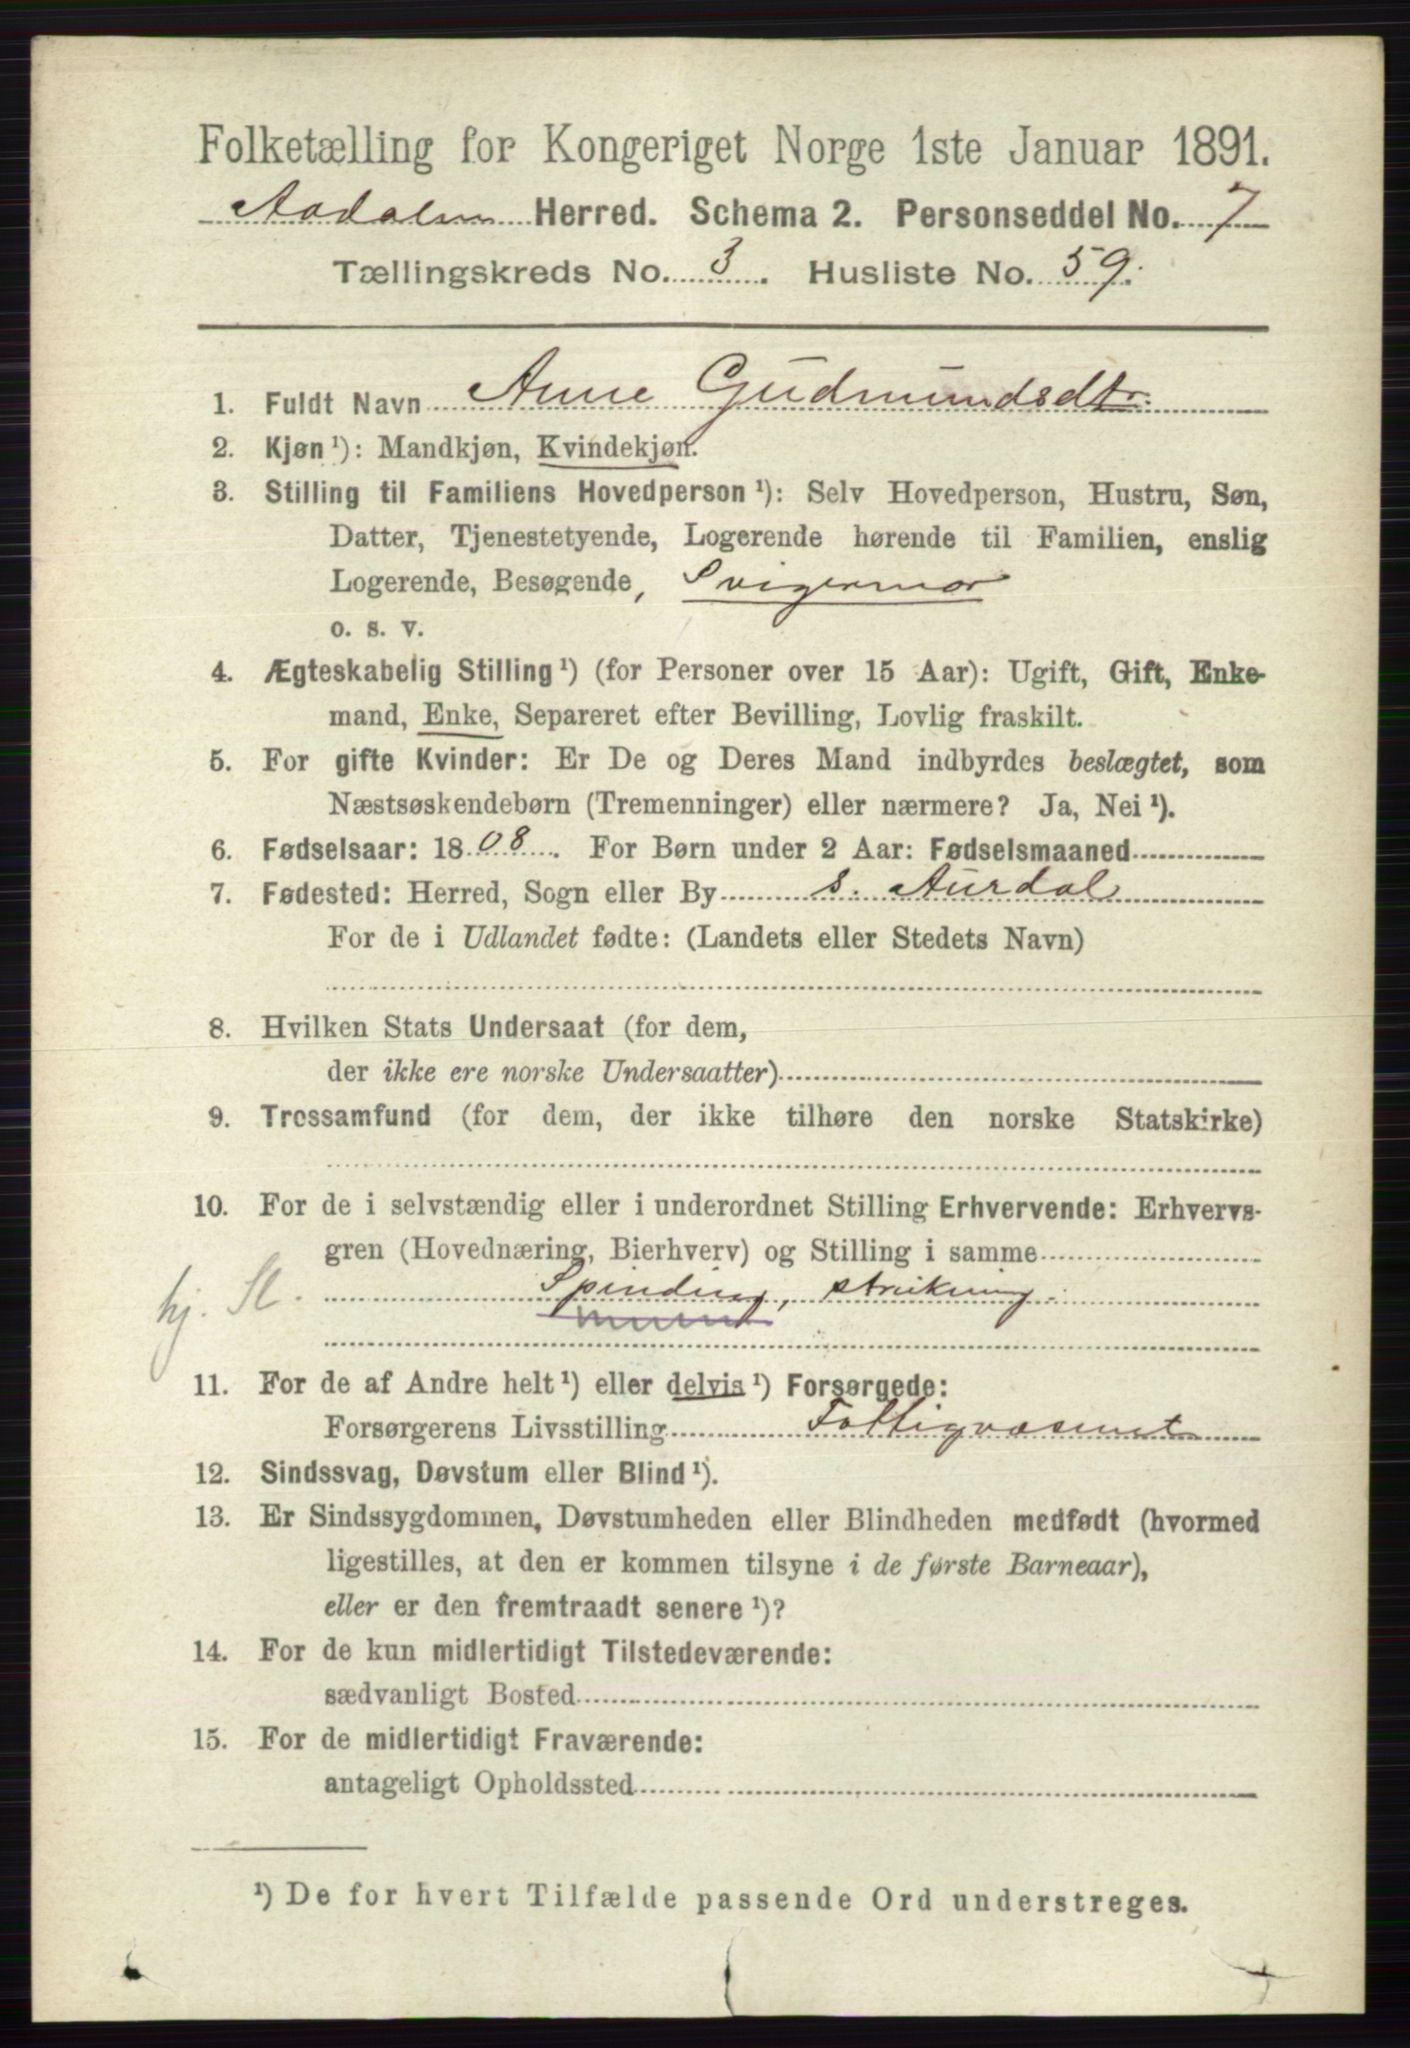 Folketælling for Kongeriget Norge 1ste Januar 1891.
Aadalen Herred. Schema 2. Personseddel No. 7
Tællingskreds No. 3. Husliste No. 59.
1. Fuldt Navn Anne Gudmundsdtr.
2. Kjøn¹): Mandkjøn, Kvindekjøn.
3. Stilling til Familiens Hovedperson¹): Selv Hovedperson, Hustru, Søn,
Datter, Tjenestetyende, Logerende hørende til Familien, enslig
Logerende, Besøgende, Svigermor
o. s. v.
4. Ægteskabelig Stilling¹) (for Personer over 15 Aar): Ugift, Gift, Enke-
mand, Enke, Separeret efter Bevilling, Lovlig fraskilt.
5. For gifte Kvinder: Er De og Deres Mand indbyrdes beslægtet, som
Næstsøskendebørn (Tremenninger) eller nærmere? Ja, Nei¹).
6. Fødselsaar: 1808. For Børn under 2 Aar: Fødselsmaaned
7. Fødested: Herred, Sogn eller By s. Aurdal
For de i Udlandet fødte: (Landets eller Stedets Navn)
8. Hvilken Stats Undersaat (for dem,
der ikke ere norske Undersaatter)
9. Trossamfund (for dem, der ikke tilhøre den norske Statskirke)
10. For de i selvstændig eller i underordnet Stilling Erhvervende: Erhvervs-
gren (Hovednæring, Bierhverv) og Stilling i samme
hj. Sl. Spinding, strikning.
11. For de af Andre helt¹) eller delvis¹) Forsørgede:
Forsørgerens Livsstilling Fattigvæsenet
12. Sindssvag, Døvstum eller Blind¹).
13. Er Sindssygdommen, Døvstumheden eller Blindheden medfødt (hvormed
ligestilles, at den er kommen tilsyne i de første Barneaar),
eller er den fremtraadt senere¹)?
14. For de kun midlertidigt Tilstedeværende:
sædvanligt Bosted
15. For de midlertidigt Fraværende:
antageligt Opholdssted
¹) De for hvert Tilfælde passende Ord understreges.